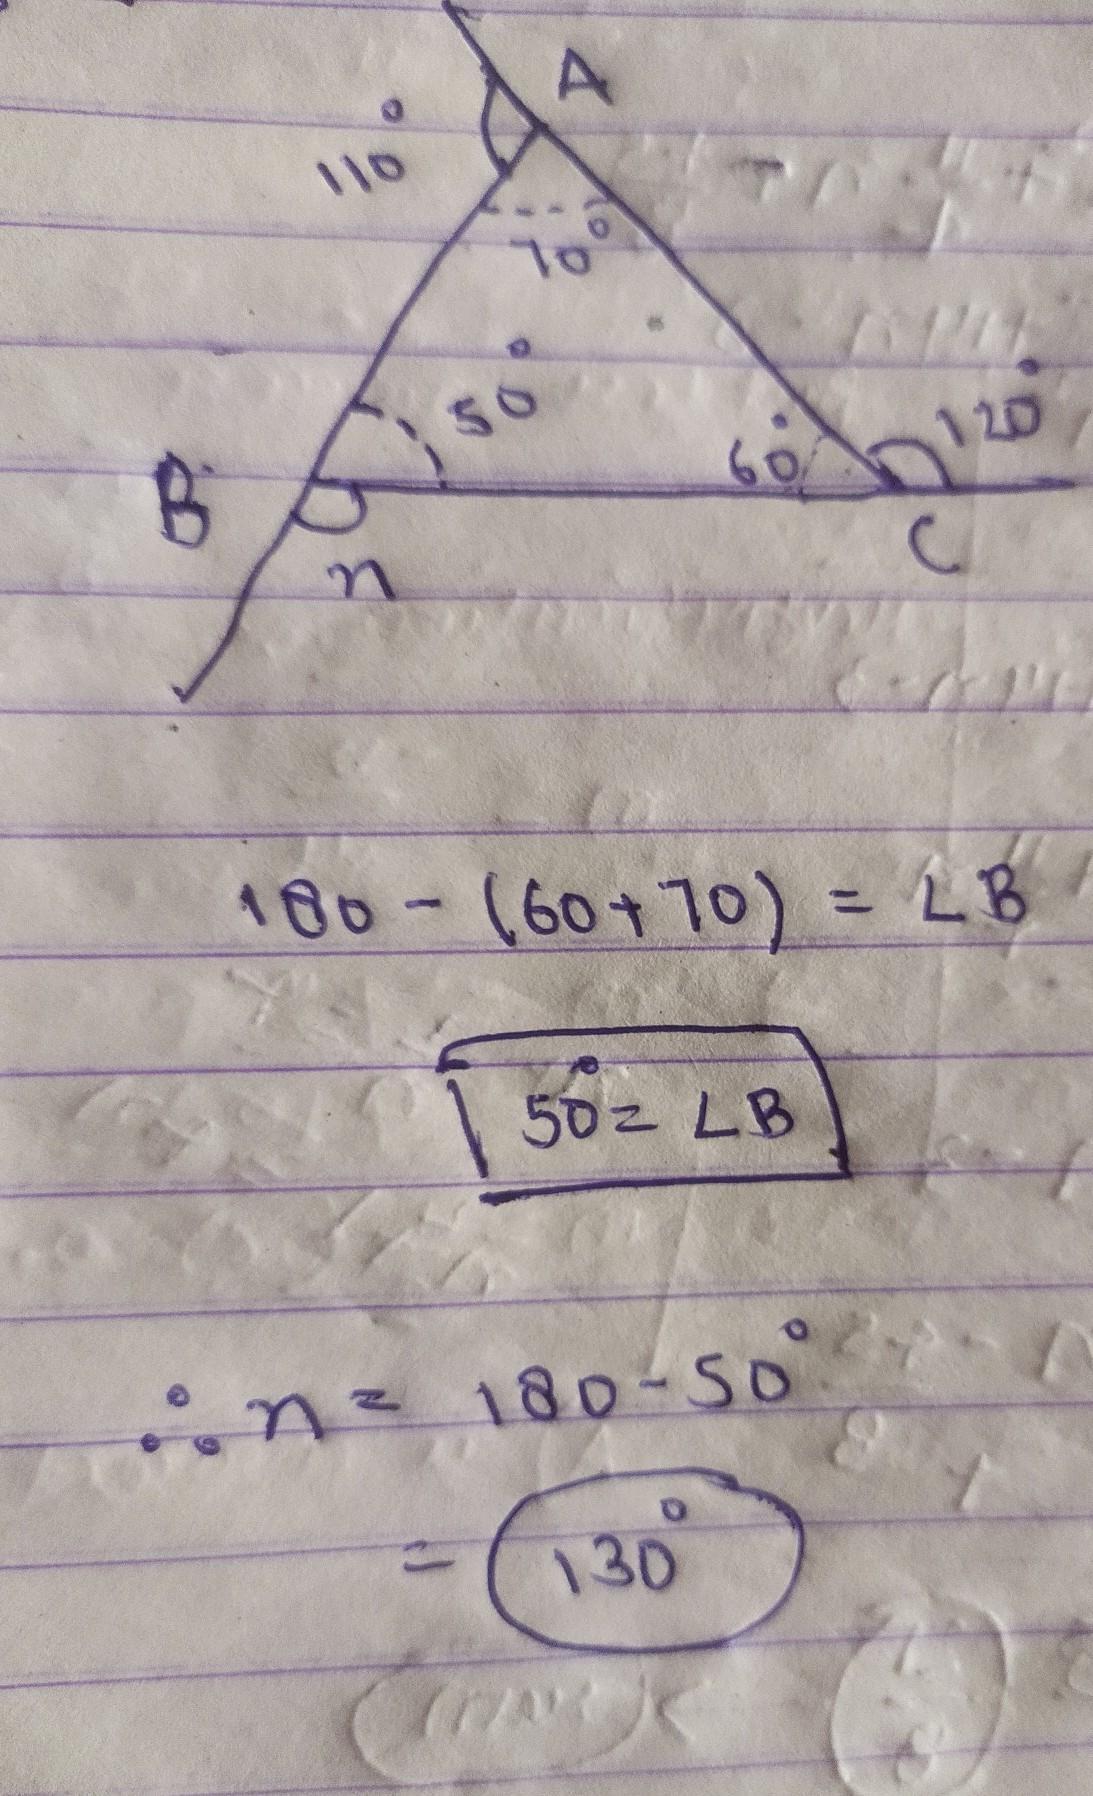 A
110°
70°
50°
120°
60°
B
C
n
180 - (60+70) = ∠B
50° = ∠B
∴ n = 180 - 50°
= 130°